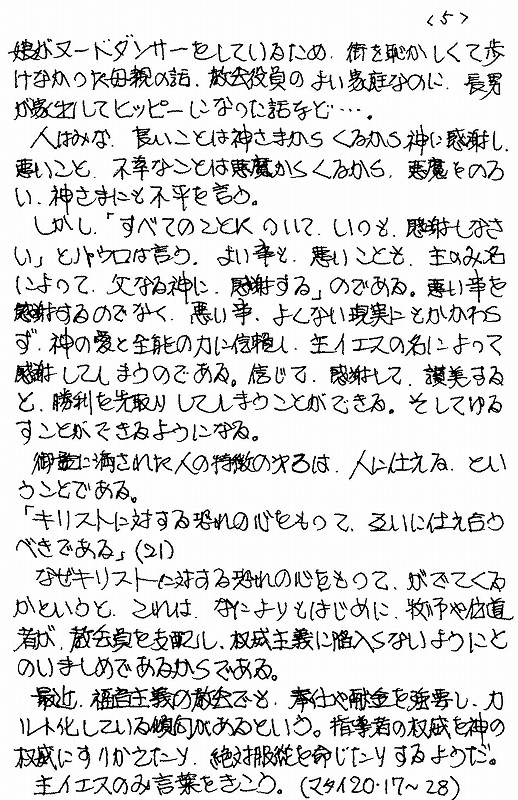 <5>
娘がヌードダンサーをしているため、街を恥かしくて歩
けなかった母親の話、教会役員のよい家庭なのに、長男
が家出してヒッピーになった話など…。
人はみな、良いことは神さまからくるから神に感謝し、
悪いこと、不幸なことは悪魔からくるから、悪魔をのろ
い、神さまにも不平を言う。
しかし、「すべてのことについて、いつも、感謝しなさ
い」とパウロは言う。よい事も、悪いことも、主のみ名
によって、父なる神に、感謝する」のである。悪い事を
感謝するのでなく、悪い事、よくない現実にもかかわら
ず、神の愛と全能の力に信頼し、主イエスの名によって
感謝してしまうのである。信じて、感謝して、讃美する
と、勝利を先取りしてしまうことができる。そしてゆる
すことができるようになる。
御霊に満された人の特徴の次ろは、人に仕える、とい
うことである。
「キリストに対する恐れの心をもって、互いに仕え合う
べきである」(21)
なぜキリストに対する恐れの心をもって、がでてくる
かというと、これは、なによりもはじめに、牧師や伝道
者が、教会員を支配し、権威主義に陥入らないようにと
のいましめであるからである。
最近、福音主義の教会でも、奉仕や献金を強要し、カ
ルト化している傾向があるという。指導者の権威を神の
権威にすりかえたり、絶対服従を命じたりするようだ。
主イエスのみ言葉をきこう。(マタイ20・17〜28)